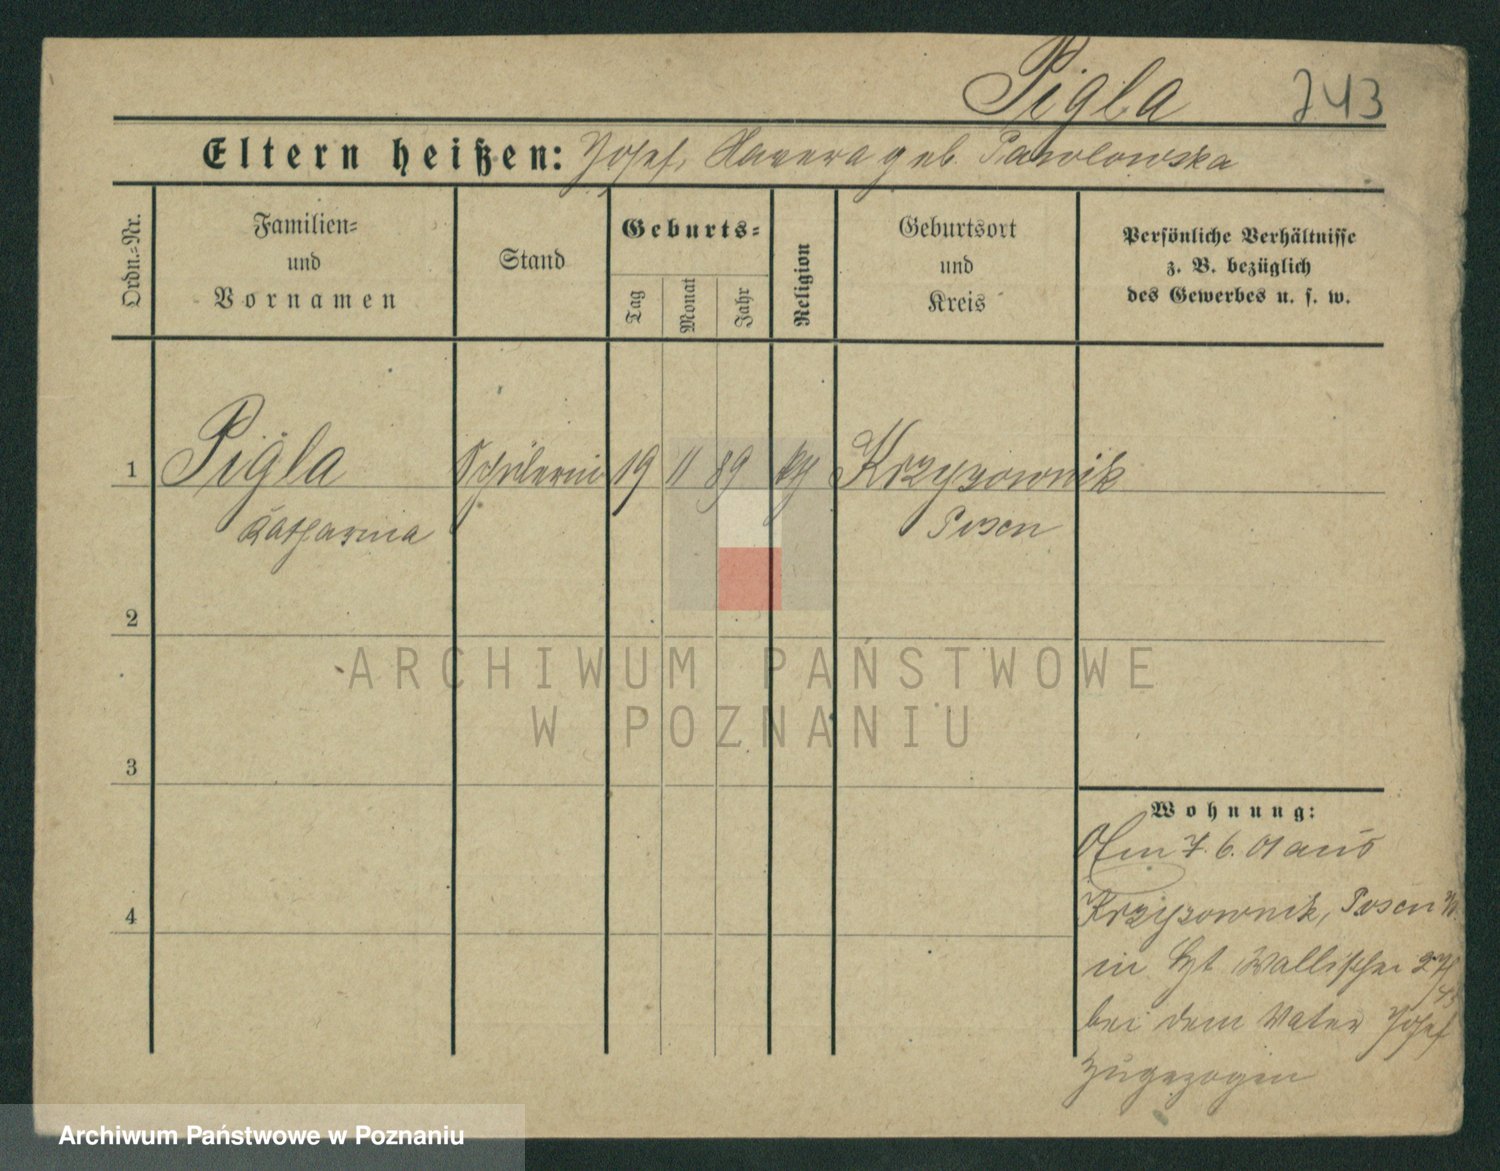 Pigla 743
Eltern heißen: Josef, Xavera geb. Pawlowska
Ordn.=Nr.
Familien=
und
Vornamen
Stand
Geburts=
Tag
Monat
Jahr
Religion
Geburtsort
und
Kreis
Persönliche Verhältnisse
z. B. bezüglich
des Gewerbes u. s. w.
1 Pigla Schülerin 19 11 89 Krzyzownik
Katharina Posen
2
ARCHIWUM PAŃSTWOWE
W POZNANIU
3
Wohnung:
Am 7. 6. 01 aus
4
Krzyzownik, Posen
in Wallischei
bei dem Vater Josef
zugezogen
Archiwum Państwowe w Poznaniu